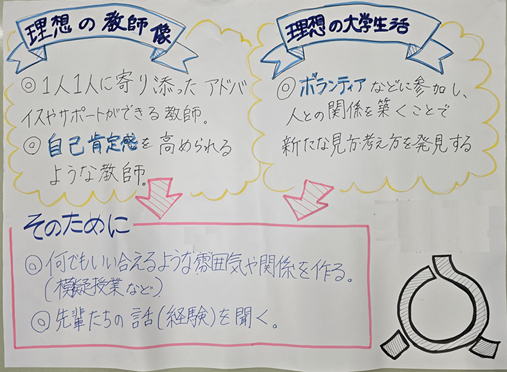 理想の教師像
◎1人1人に寄り添ったアドバ
イスやサポートができる教師。
◎自己肯定感を高められる
ような教師。
理想の大学生活
◎ボランティアなどに参加し、
人との関係を築くことで
新たな見方考え方を発見する
そのために
◎何でもいい合えるような雰囲気や関係を作る。
(模擬授業など)
◎先輩たちの話(経験)を聞く。